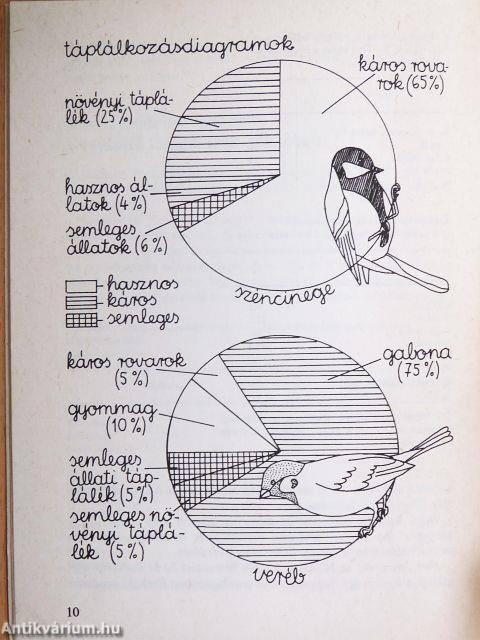 táplálkozásdiagramok
káros rova-
rok (65%)
növényi táplá-
lék (25%)
hasznos ál-
latok (4%)
semleges
állatok (6%)
hasznos
káros
semleges
széncinege
káros rovarok
(5%)
gabona
(75%)
gyommag
(10%)
semleges
állati táp-
lálék (5%)
semleges nö-
vényi táplá-
lék (5%)
veréb
10
Antikvárium.hu